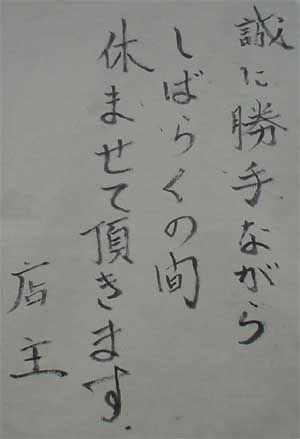 誠に勝手ながら
しばらくの間
休ませて頂きます.
店主